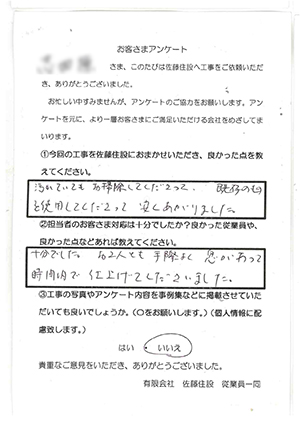 お客さまアンケート
さま、このたびは佐藤住設へ工事をご依頼いただ
き、ありがとうございました。
お忙しい中すみませんが、アンケートのご協力をお願いします。アン
ケートを元に、より一層お客さまにご満足いただける会社をめざしてま
いります。
①今回の工事を佐藤住設におまかせいただき、良かった点を教え
てください。
汚れていても お掃除してくださって、既存のもの
を使用してくださって 安くあがりました。
②担当者のお客さま対応は十分でしたか？良かった従業員や、
良かった点などあれば教えてください。
十分でした。 お2人とも 手際よく 息があって
時間内で 仕上げてしてくださいました。
③工事の写真やアンケート内容を事例集などに掲載させていた
だいても良いでしょうか。(○をお願いします。)(個人情報に配
慮致します。)
はい いいえ
貴重なご意見をいただき、ありがとうございました。
有限会社 佐藤住設 従業員一同